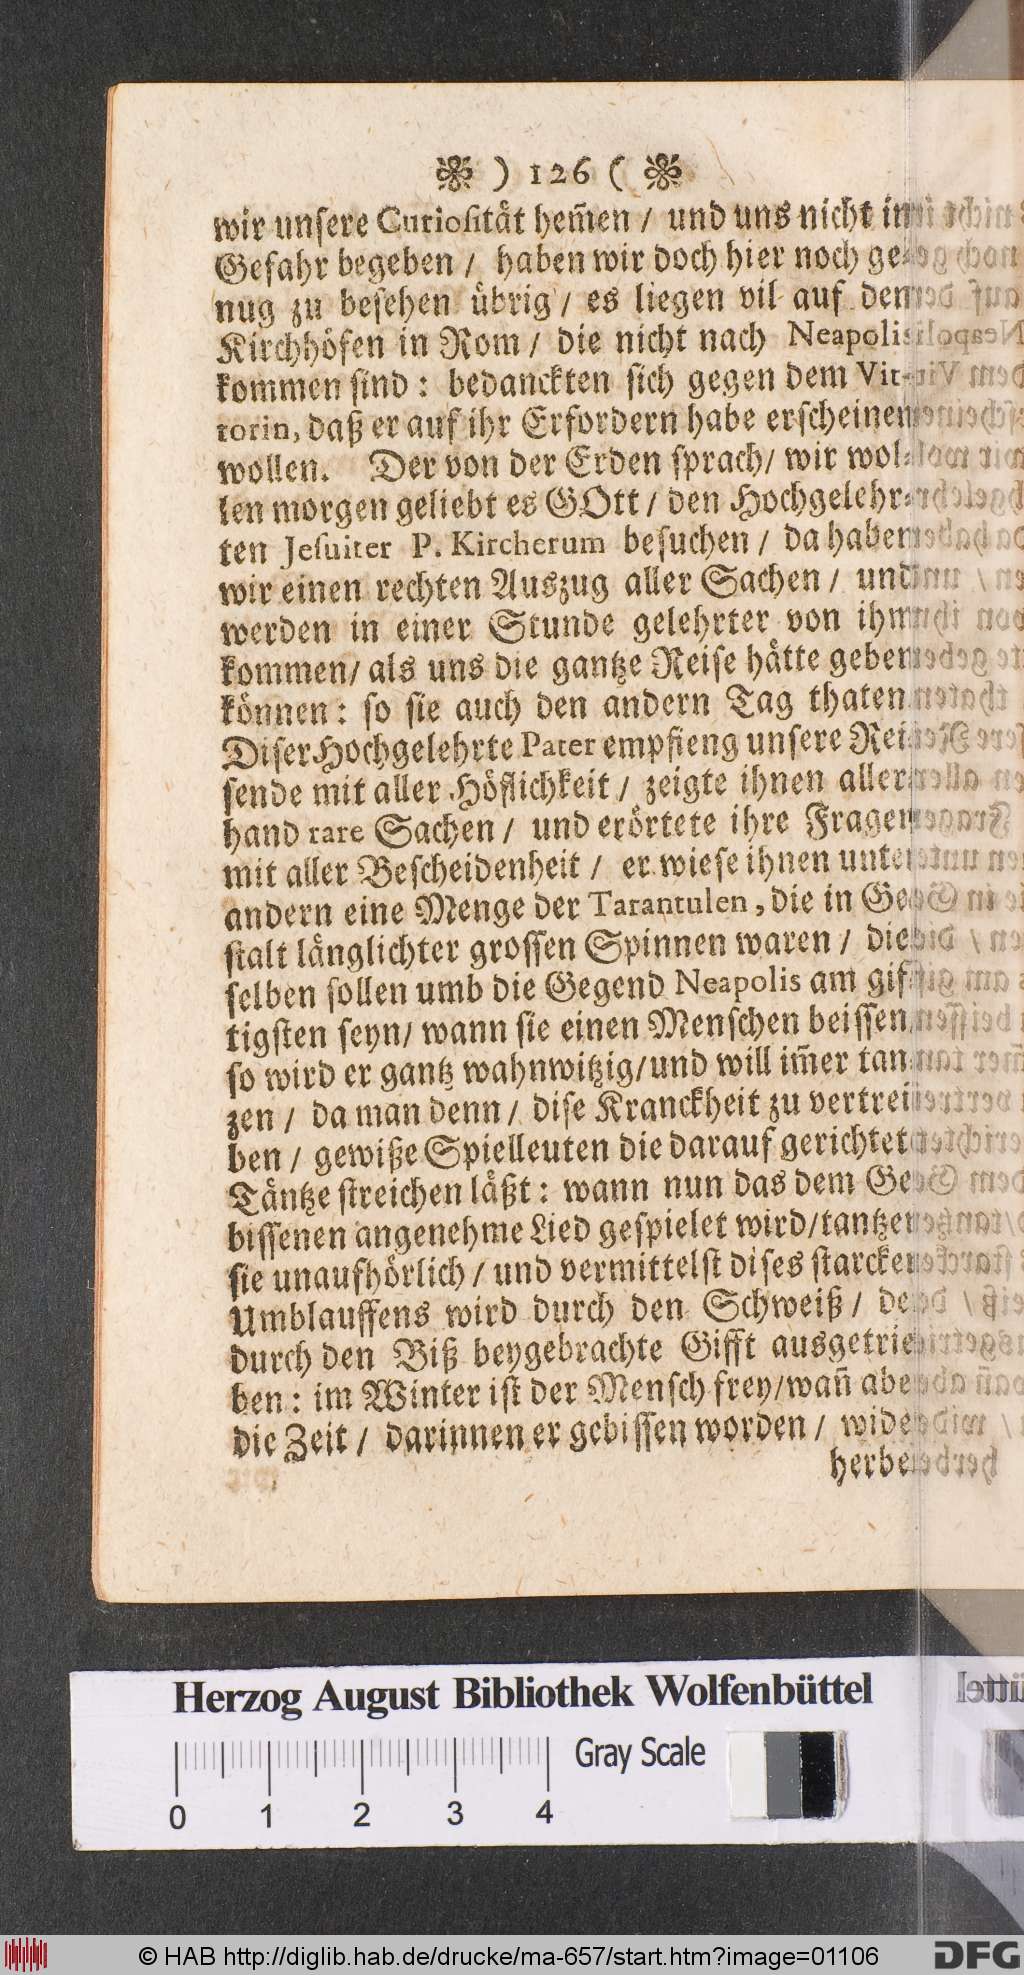 ) 126 (
wir unsere Curiosität hem̃en / und uns nicht in
Gefahr begeben / haben wir doch hier noch ge-
nug zu besehen übrig / es liegen vil auf den
Kirchhöfen in Rom / die nicht nach Neapolis
kommen sind : bedanckten sich gegen dem Vit-
torin, daß er auf ihr Erfordern habe erscheinen
wollen. Der von der Erden sprach / wir wol-
len morgen geliebt es GOtt / den Hochgelehr-
ten Jesuiter P. Kircherum besuchen / da haben
wir einen rechten Auszug aller Sachen / und
werden in einer Stunde gelehrter von ihm
kommen / als uns die gantze Reise hätte geben
können : so sie auch den andern Tag thaten
Diser Hochgelehrte Pater empfieng unsere Rei-
sende mit aller Höflichkeit / zeigte ihnen aller-
hand rare Sachen / und erörtete ihre Fragen
mit aller Bescheidenheit / er wiese ihnen unter
andern eine Menge der Tarantulen, die in Ge-
stalt länglichter grossen Spinnen waren / die-
selben sollen umb die Gegend Neapolis am gif-
tigsten seyn / wann sie einen Menschen beissen
so wird er gantz wahnwitzig / und will im̃er tan-
zen / da man denn / dise Kranckheit zu vertrei-
ben / gewiße Spielleuten die darauf gerichtet
Täntze streichen läßt : wann nun das dem Ge-
bissenen angenehme Lied gespielet wird / tantzen
sie unaufhörlich / und vermittelst dises starcken
Umblauffens wird durch den Schweiß /
durch den Biß beygebrachte Gifft ausgetrie-
ben : im Winter ist der Mensch frey / wañ aber
die Zeit / darinnen er gebissen worden / wider
herbe
Herzog August Bibliothek Wolfenbüttel
0 1 2 3 4
Gray Scale
© HAB http://diglib.hab.de/drucke/ma-657/start.htm?image=01106
DFG